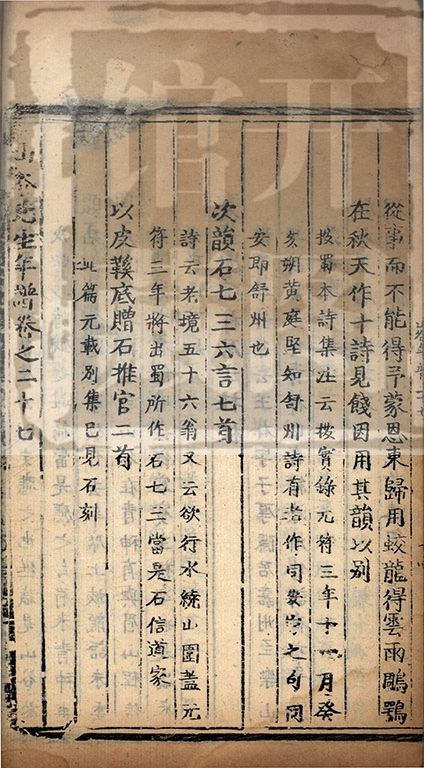 從事而不能得予蒙恩東歸用蛟龍得雲雨鵰鶚
在秋天作十詩見餞因用其韻以别
按蜀本詩集注云按實錄元符三年十一月癸
亥朔黄庭堅知舒州詩有老作同安守之句同
安即舒州也
次韻石七三六言七首
詩云老境五十六翁又云欲行水繞山圍蓋元
符三年將出蜀所作石七三當是石信道家
以皮鞵底贈石推官二首
此篇元載别集已見石刻
山谷先生年譜卷之二十七